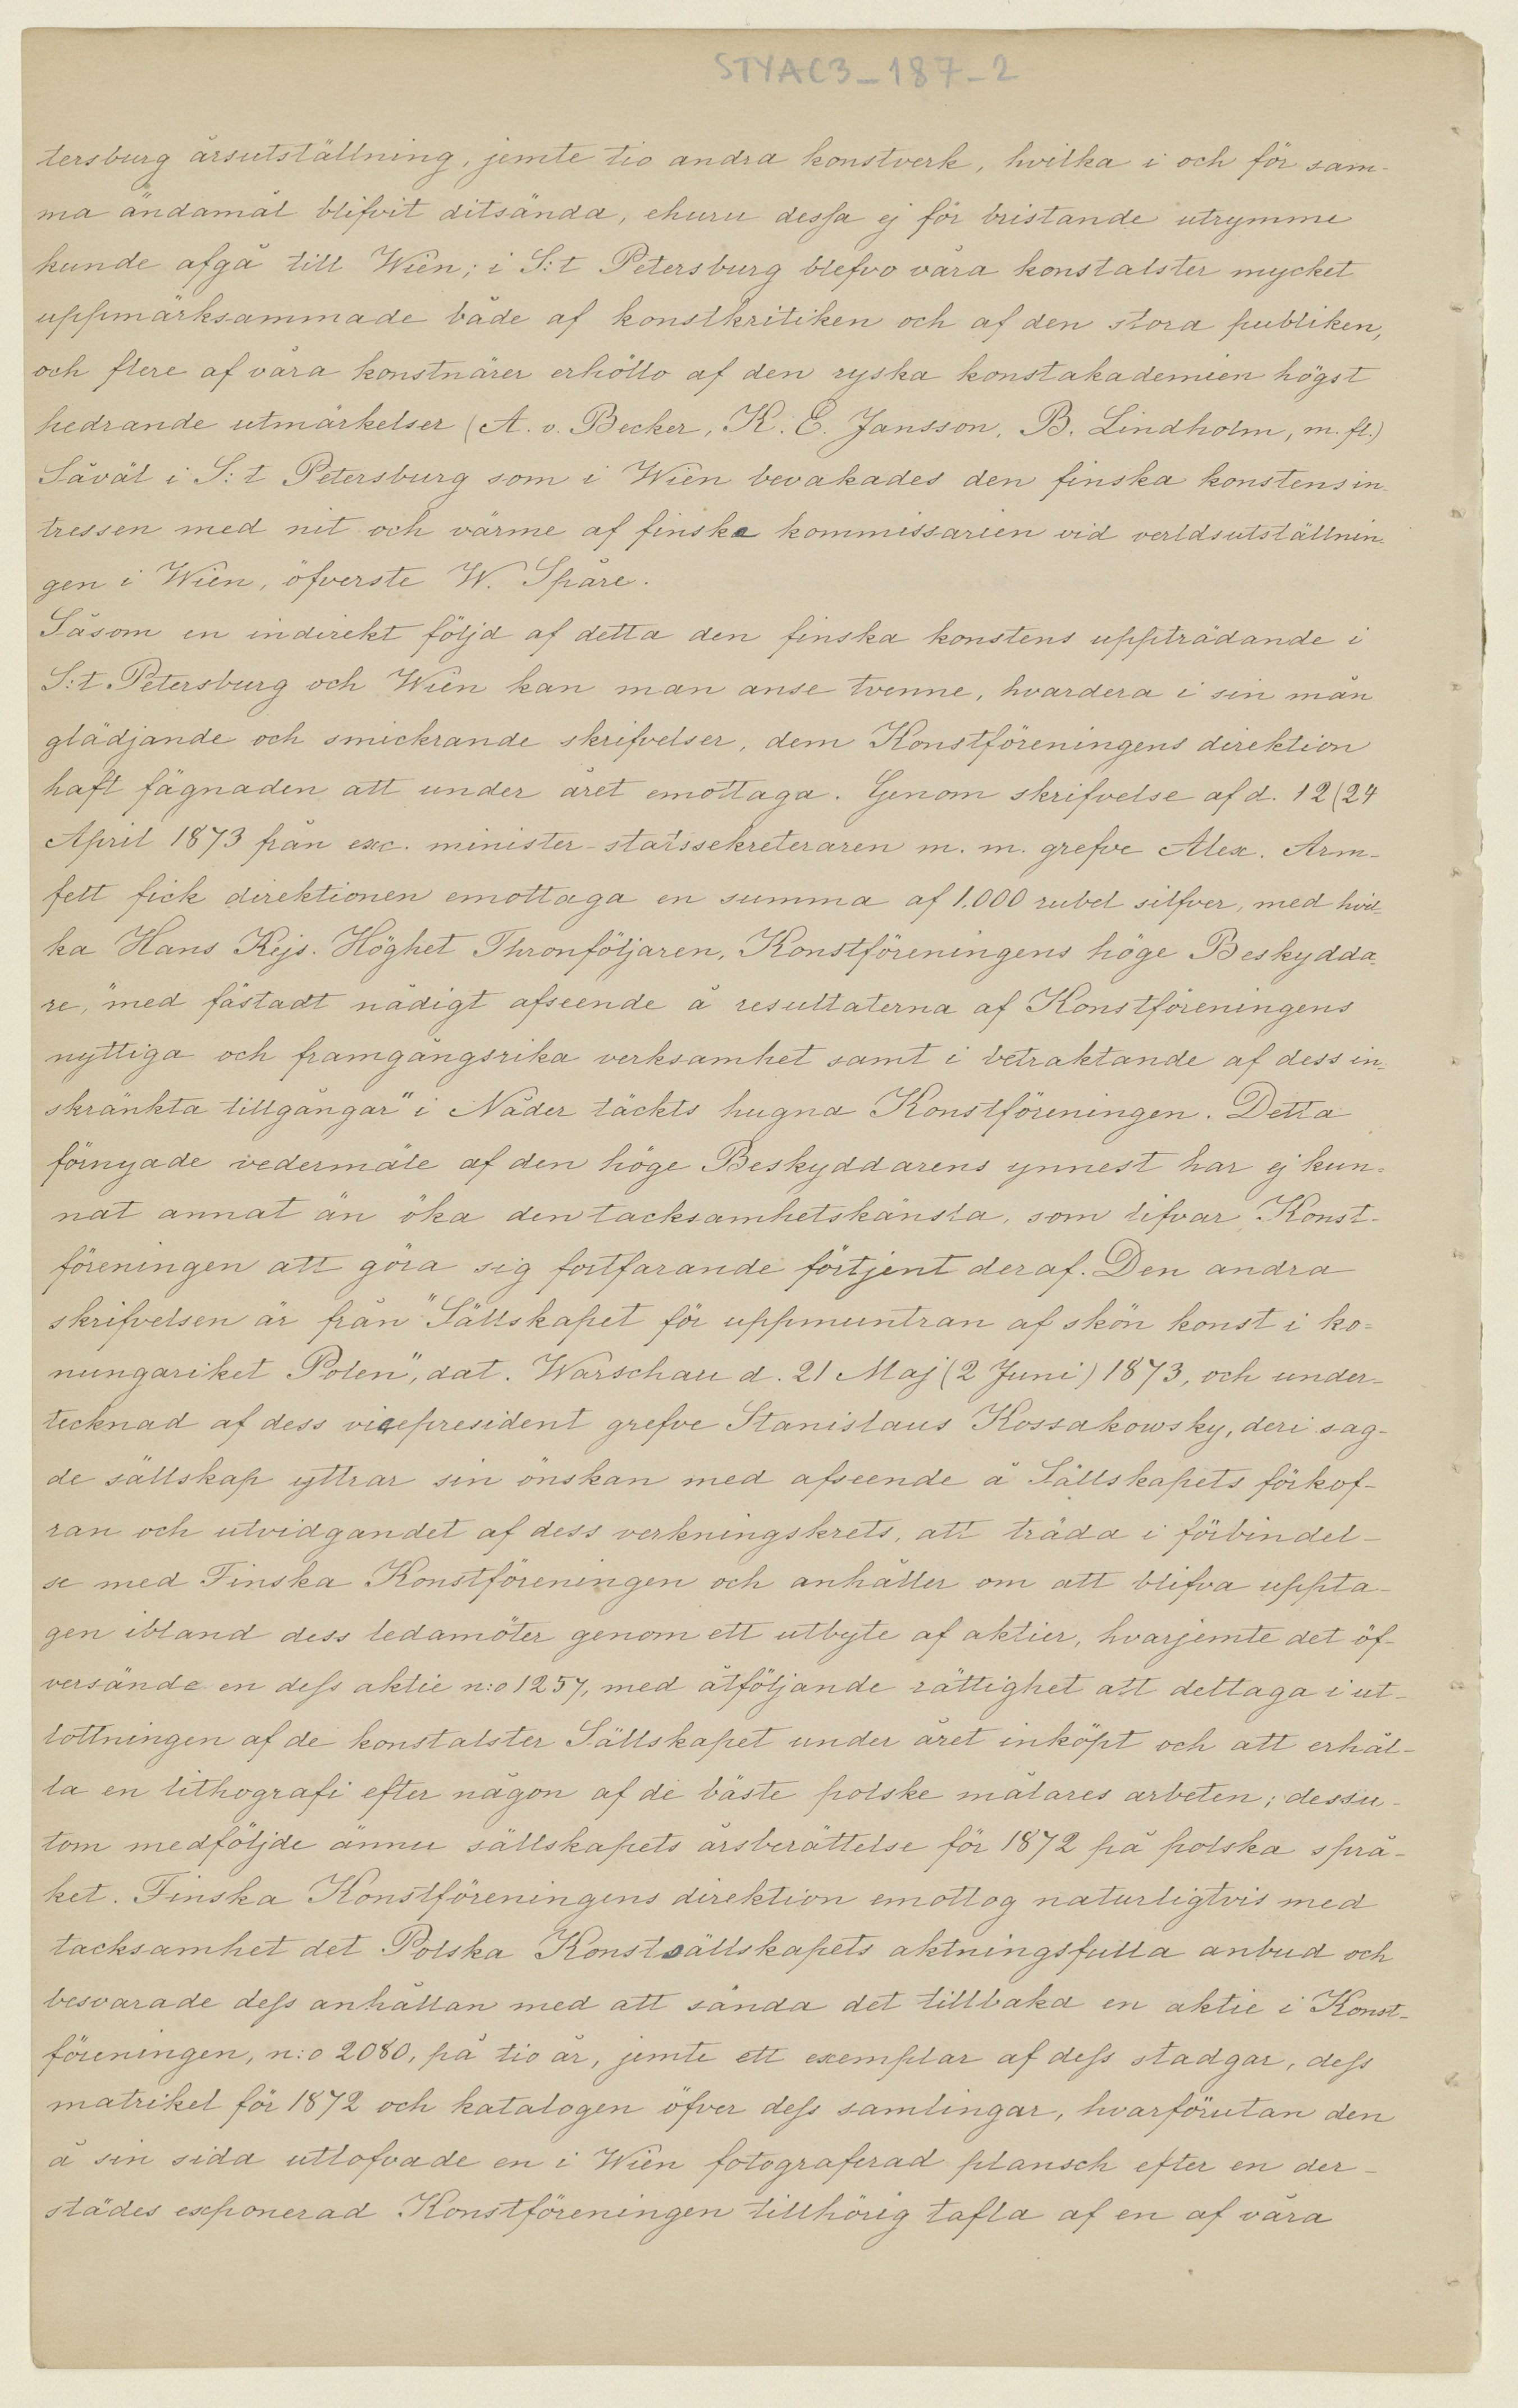 STYAC3_187_2
tersburg årsutställning, jemte tio andra konstverk, hvilka i och för sam-
ma ändamål blifvit ditsända, ehuru dessa ej för bristande utrymme
kunde afgå till Wien; i S:t Petersburg blefvo våra konstalster mycket
uppmärksammade både af konstkritiken och af den stora publiken,
och flere af våra konstnärer erhöllo af den ryska konstakademien högst
hedrande utmärkelser (A. v. Becker, K. E. Jansson, B. Lindholm, m. fl.)
Såväl i S:t Petersburg som i Wien bevakades den finska konstens in-
tressen med nit och värme af finska kommissarien vid verldsutställnin-
gen i Wien, öfverste W. Spåre.
Såsom en indirekt följd af detta den finska konstens uppträdande i
S:t Petersburg och Wien kan man anse tvenne, hvardera i sin mån
glädjande och smickrande skrifvelser, dem Konstföreningens direktion
haft fägnaden att under året emottaga. Genom skrifvelse af d. 12(24
April 1873 från exc. minister-statssekreteraren m. m. grefve Alex. Arm-
felt fick direktionen emottaga en summa af 1.000 rubel silfver, med hvil-
ka Hans Kejs. Höghet Thronföljaren, Konstföreningens höge Beskydda-
re, "med fästadt nådigt afseende å resultaterna af Konstföreningens
nyttiga och framgångsrika verksamhet samt i betraktande af dess in-
skränkta tillgångar" i Nåder täckts hugna Konstföreningen. Detta
förnyade vedermäle af den höge Beskyddarens ynnest har ej kun-
nat annat än öka den tacksamhetskänsla, som lifvar Konst-
föreningen att göra sig fortfarande förtjent deraf. Den andra
skrifvelsen är från "Sällskapet för uppmuntran af skön konst i ko-
nungariket Polen", dat. Warschau d. 21 Maj (2 Juni) 1873, och under-
tecknad af dess vicepresident grefve Stanislaus Kossakowsky, deri sag-
de sällskap yttrar sin önskan med afseende å Sällskapets förkof-
ran och utvidgandet af dess verkningskrets, att träda i förbindel-
se med Finska Konstföreningen och anhåller om att blifva uppta-
gen ibland dess ledamöter genom ett utbyte af aktier, hvarjemte det öf-
versände en dess aktie n:o 1257, med åtföljande rättighet att deltaga i ut-
lottningen af de konstalster Sällskapet under året inköpt och att erhål-
la en lithografi efter någon af de bäste polske målares arbeten; dessu-
tom medföljde ännu sällskapets årsberättelse för 1872 på polska språ-
ket. Finska Konstföreningens direktion emottog naturligtvis med
tacksamhet det Polska Konstsällskapets aktningsfulla anbud och
besvarade dess anhållan med att sända det tillbaka en aktie i Konst-
föreningen, n:o 2080, på tio år, jemte ett exemplar af dess stadgar, dess
matrikel för 1872 och katalogen öfver dess samlingar, hvarförutan den
å sin sida utlofvade en i Wien fotograferad plansch efter en der-
städes exponerad Konstföreningen tillhörig tafla af en af våra